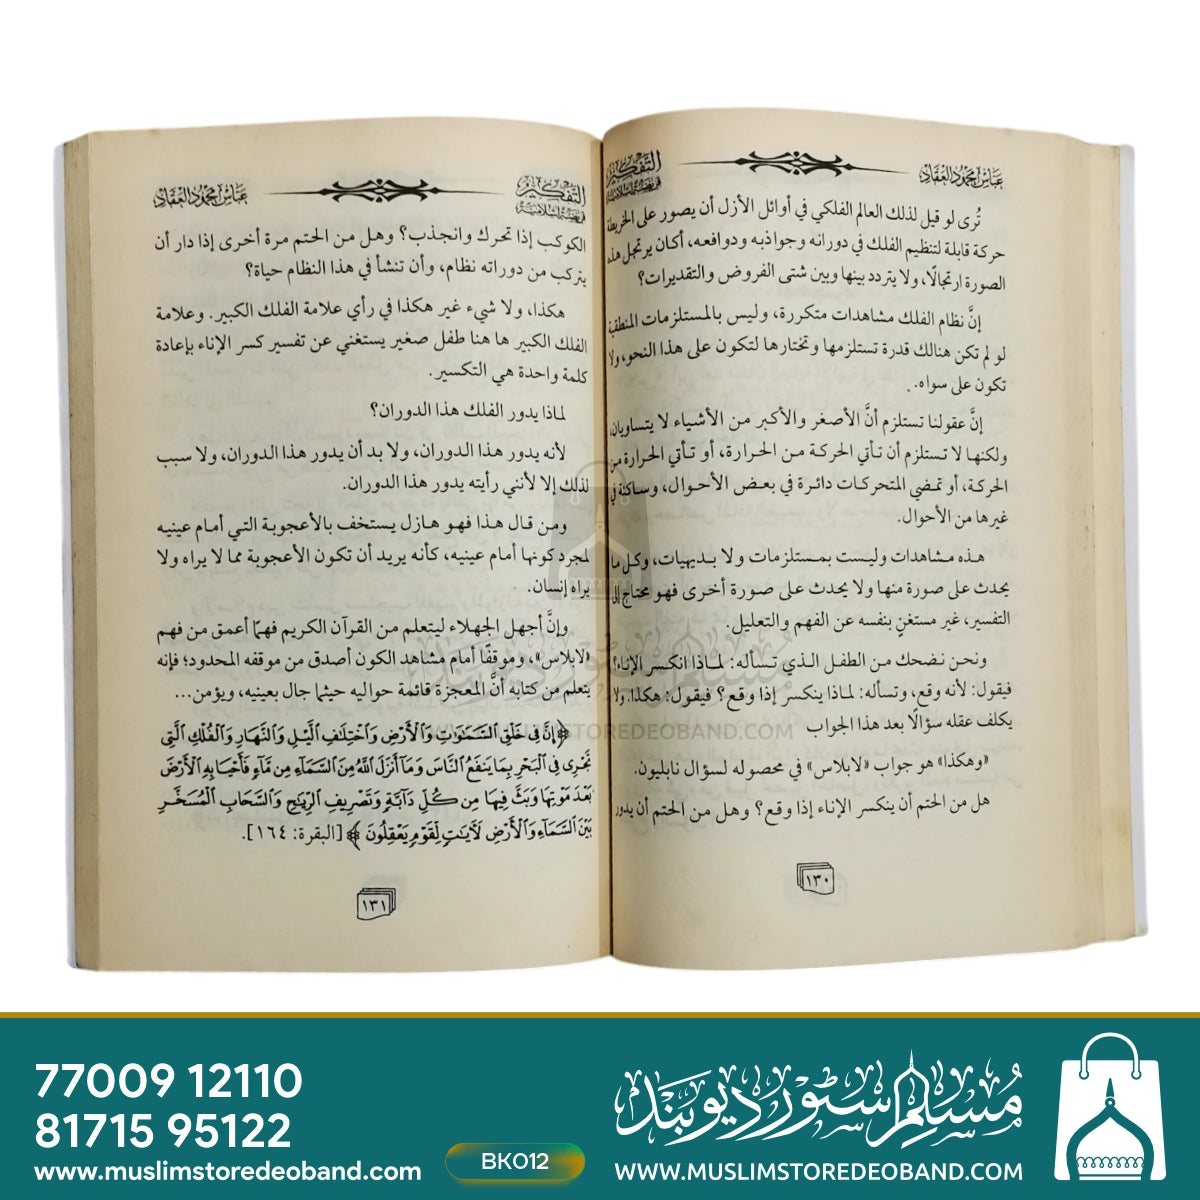 عباس محمود العقاد
التفكير
فريضة إسلامية
تُرى لو قيل لذلك العالم الفلكي في أوائل الأزل أن يصور على الخريطة
حركة قابلة لتنظيم الفلك في دورانه وجواذبه ودوافعه، أكان يرتجل هذه
الصورة ارتجالًا، ولا يتردد بينها وبين شتى الفروض والتقديرات؟
إنَّ نظام الفلك مشاهدات متكررة، وليس بالمستلزمات المنطقية
لو لم تكن هنالك قدرة تستلزمها وتختارها لتكون على هذا النحو، ولا
تكون على سواه.
إنَّ عقولنا تستلزم أنَّ الأصغر والأكبر من الأشياء لا يتساويان،
ولكنها لا تستلزم أن تأتي الحركة من الحرارة، أو تأتي الحرارة من
الحركة، أو تمضي المتحركات دائرة في بعض الأحوال، وساكنة في
غيرها من الأحوال.
هذه مشاهدات وليست بمستلزمات ولا بديهيات، وكل ما
يحدث على صورة منها ولا يحدث على صورة أخرى فهو محتاج إلى
التفسير، غير مستغنٍ بنفسه عن الفهم والتعليل.
ونحن نضحك من الطفل الذي تسأله: لماذا انكسر الإناء؟
فيقول: لأنه وقع، وتسأله: لماذا ينكسر إذا وقع؟ فيقول: هكذا. ولا
يكلف عقله سؤالًا بعد هذا الجواب
«وهكذا» هو جواب «لابلاس» في محصوله لسؤال نابليون.
هل من الحتم أن ينكسر الإناء إذا وقع؟ وهل من الحتم أن يدور
١٣٠
التفكير
فريضة إسلامية
عباس محمود العقاد
الكوكب إذا تحرك وانجذب؟ وهل من الحتم مرة أخرى إذا دار أن
يتركب من دوراته نظام، وأن تنشأ في هذا النظام حياة؟
هكذا، ولا شيء غير هكذا في رأي علامة الفلك الكبير. وعلامة
الفلك الكبير ها هنا طفل صغير يستغني عن تفسير كسر الإناء بإعادة
كلمة واحدة هي التكسير.
لماذا يدور الفلك هذا الدوران؟
لأنه يدور هذا الدوران، ولا بد أن يدور هذا الدوران، ولا سبب
لذلك إلا لأنني رأيته يدور هذا الدوران.
ومن قال هذا فهو هازل يستخف بالأعجوبة التي أمام عينيه
لمجرد كونها أمام عينيه، كأنه يريد أن تكون الأعجوبة مما لا يراه ولا
يراه إنسان.
وإنَّ أجهل الجهلاء ليتعلم من القرآن الكريم فهمًا أعمق من فهم
«لابلاس»، وموقفًا أمام مشاهد الكون أصدق من موقفه المحدود؛ فإنه
يتعلم من كتابه أنَّ المعجزة قائمة حواليه حيثما جال بعينيه، ويؤمن...
﴿إِنَّ فِي خَلْقِ ٱلسَّمَٰوَٰتِ وَٱلْأَرْضِ وَٱخْتِلَٰفِ ٱلَّيْلِ وَٱلنَّهَارِ وَٱلْفُلْكِ ٱلَّتِي
تَجْرِي فِي ٱلْبَحْرِ بِمَا يَنفَعُ ٱلنَّاسَ وَمَآ أَنزَلَ ٱللَّهُ مِنَ ٱلسَّمَآءِ مِن مَّآءٍ فَأَحْيَا بِهِ ٱلْأَرْضَ
بَعْدَ مَوْتِهَا وَبَثَّ فِيهَا مِن كُلِّ دَآبَّةٍ وَتَصْرِيفِ ٱلرِّيَٰحِ وَٱلسَّحَابِ ٱلْمُسَخَّرِ
بَيْنَ ٱلسَّمَآءِ وَٱلْأَرْضِ لَءَايَٰتٍ لِّقَوْمٍ يَعْقِلُونَ﴾ [البقرة: ١٦٤].
١٣١
مسلم سٹور دیوبند
WWW.MUSLIMSTOREDEOBAND.COM
77009 12110
81715 95122
www.muslimstoredeoband.com
BK012
مسلم سٹور دیوبند
WWW.MUSLIMSTOREDEOBAND.COM